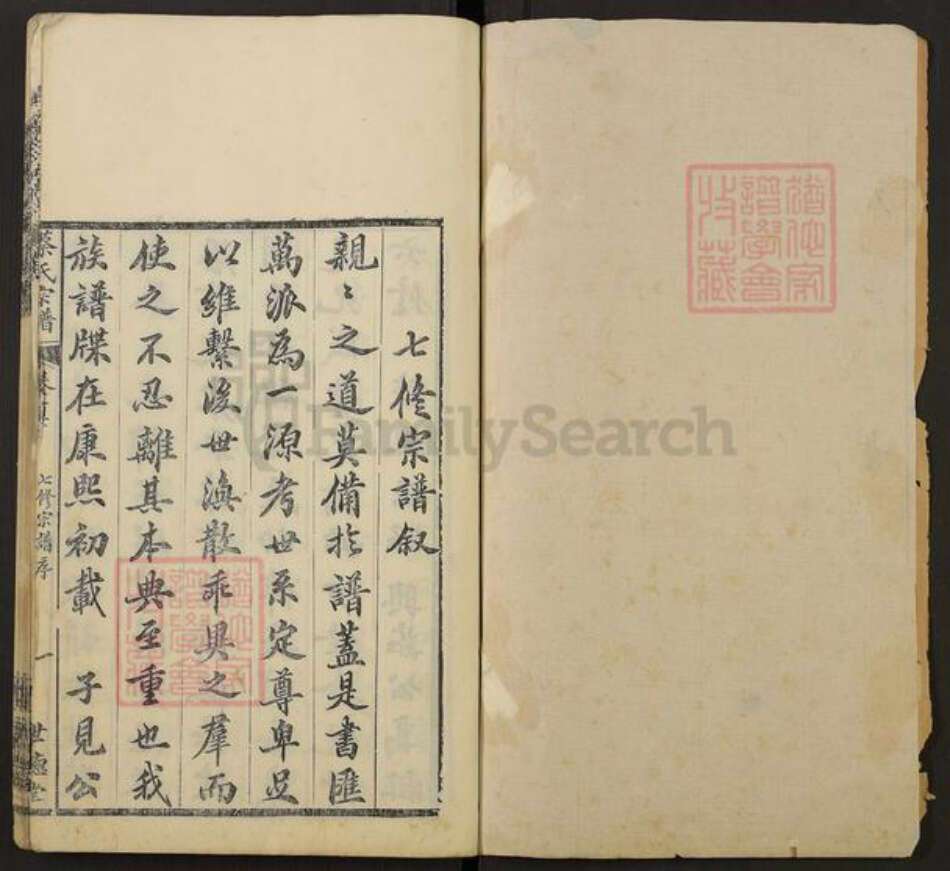 七修宗譜叙
親〻之道莫備於譜蓋是書匯
萬派為一源考世系定尊卑足
以維繫後世渙散乖異之羣而
使之不忍離其本典至重也我
族譜牒在康熙初載 子見公
蔡氏宗譜
卷首
七修宗譜序
一
世德堂
譜學會
收藏
FamilySearch